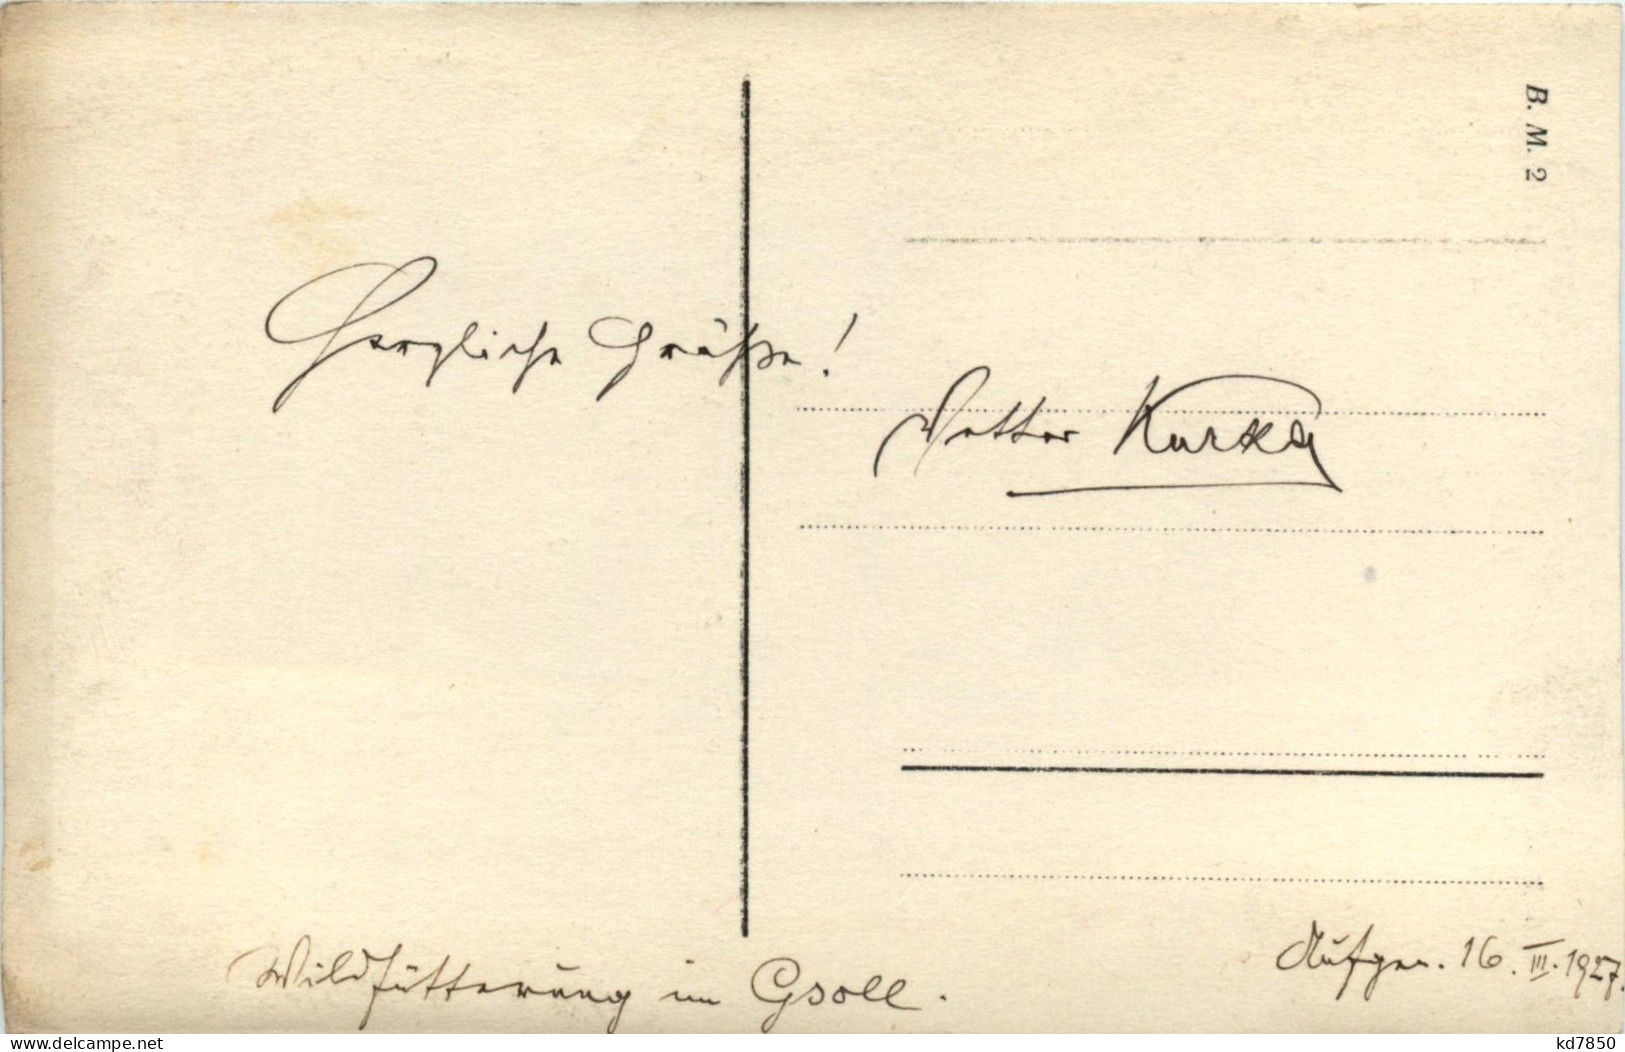 B. M. 2
Herzliche Grüße!
Vetter Kurka
Wildfütterung im Gsoll.
Aufgen. 16. III. 1927.
delcampe.net
kd7850